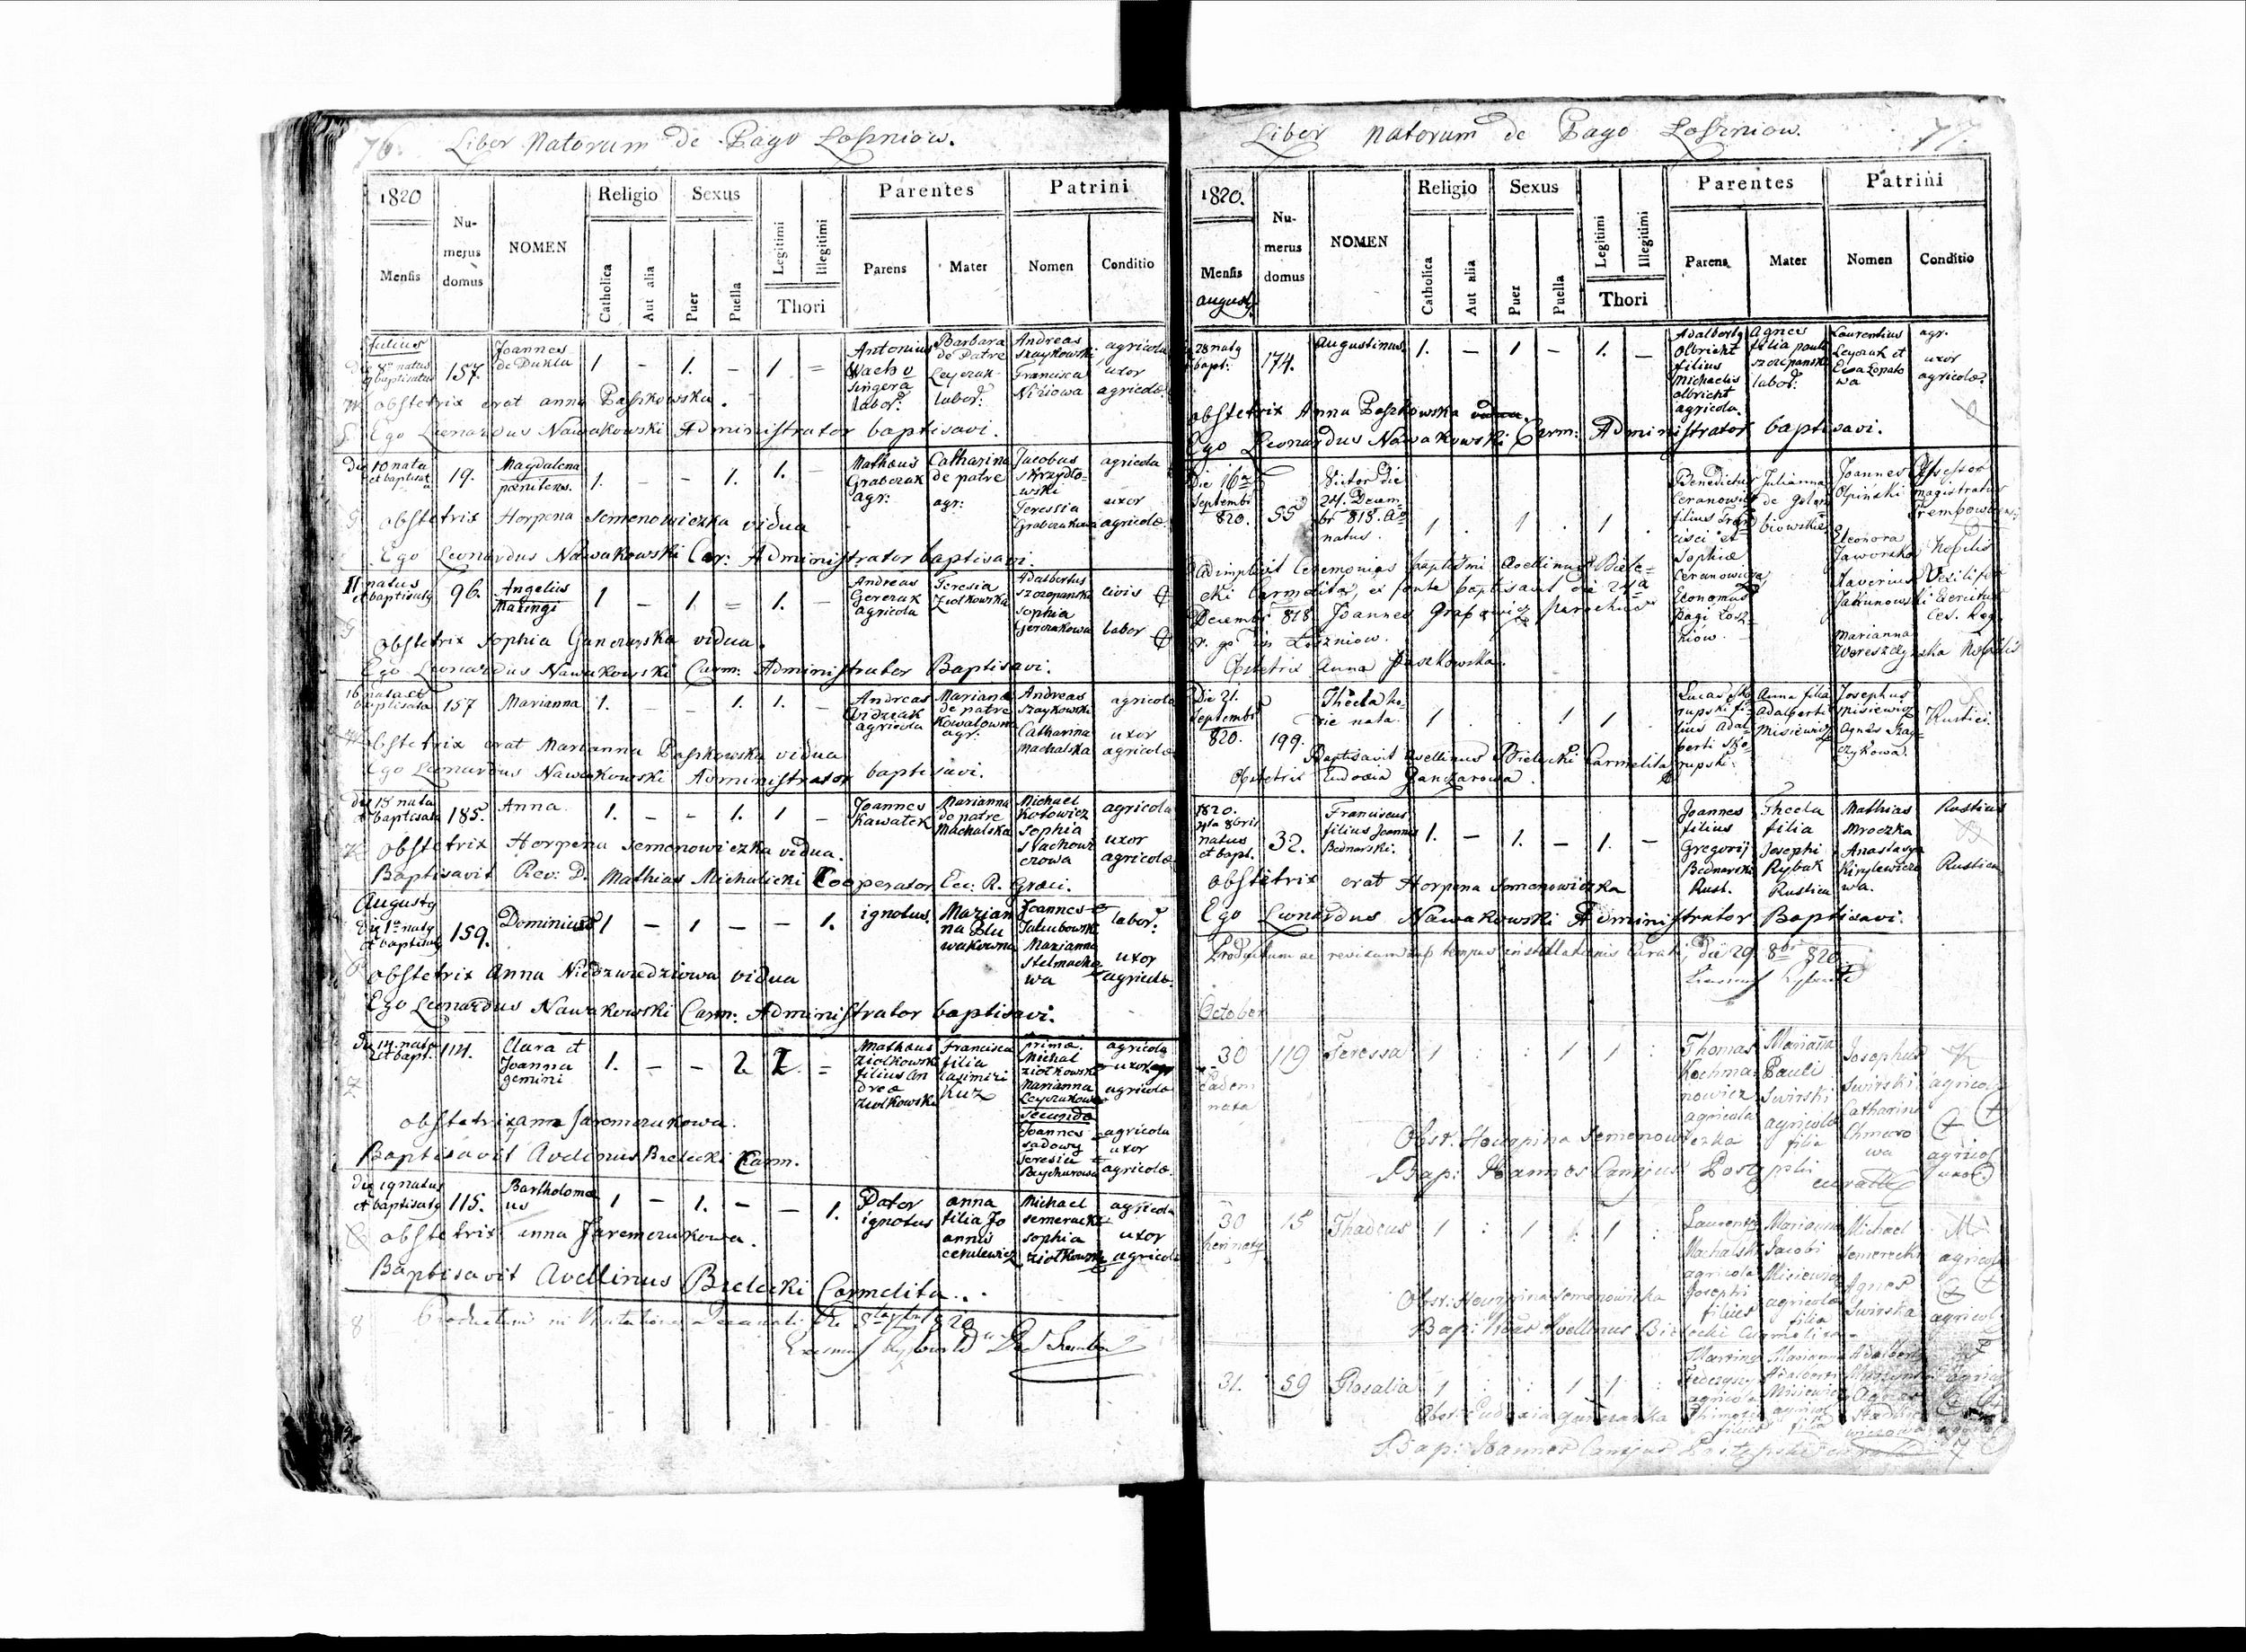 76. Liber Natorum de Pago Loszniow.
1820
Religio Sexus Parentes Patrini
Mensis Numerus domus NOMEN Catholica Aut alia Puer Puella Legitimi Illegitimi Thori Parens Mater Nomen Conditio
Julius
8va natus et baptisatus 157. Joannes de Dukla 1. - 1. - 1 = Antonius Wacho Singera labor: Barbara de Patre Leyczak labor: Andreas Szaykowski Francisca Niziowa agricola uxor agricolae
Obstetrix erat anna Paszkowska.
Ego Leonardus Nawakowski Administrator baptisavi.
die 10 nata et baptisata 19. Magdalena poenitens. 1. - - 1. 1. - Mathaeus Grabczak agr: Catharina de patre agr: Jacobus Skrzydlowski Teressia Grabczakowa agricola uxor agricolae
obstetrix Horpena Semenowiczka vidua
Ego Leonardus Nawakowski Car: Administrator baptisavi.
11 natus et baptisatus 96. Angelus Maringi 1 - 1 = 1. - Andreas Gerczak agricola Teresia Ziolkowska Adalbertus Szczepanski Sophia Gerczakowa civis labor
obstetrix Sophia Ganczarska vidua.
Ego Leonardus Nawakowski Carm: Administrator Baptisavi.
16 nata et baptisata 157 Marianna 1. - - 1. 1. - Andreas Widzak agricola Mariana de patre Kowalowna agr. Andreas Szaykowski Catharina Machalska agricola uxor agricolae
Obstetrix erat Marianna Paszkowska vidua
Ego Leonardus Nawakowski Administrator baptisavi.
die 18 nata et baptisata 185. Anna 1. - - 1. 1 - Joannes Kawalek Marianna de patre Machalska Michael Kotowicz Sophia Stachowiczowa agricola uxor agricolae
obstetrix Horpena Semenowiczka vidua.
Baptisavit Rev: D. Mathias Michalicki Cooperator Ecc: R. Graeci.
Augusty
Die 1a natus et baptisatus 159. Dominicus 1 - 1 - - 1. ignotus. Marianna Joannes Jakubowski Marianna Stelmachowa labor: uxor agricolae
obstetrix Anna Niedzwiedziowa vidua
Ego Leonardus Nawakowski Carm: Administrator baptisavi.
die 14. nata et bapt. 114. Clara et Joanna gemini 1. - - 2 2. = Mathaeus Ziolkowski filius Andreae Ziolkowski Francisca filia Casimiri Kuz prima. Michal Ziolkowski Marianna Leyczakowa Secunda Joannes Sadowy Teresia agricola uxor agricolae agricola uxor agricolae
obstetrix anna Jaremczukowa.
Baptisavit Avelinus Bielecki Carm.
die natus et baptisatus 115. Bartholomaeus 1 - 1. - - 1. Pater ignotus anna filia Joannis Cerulewicz Michael Semeracki Sophia Ziolkowska agricola uxor agricolae
obstetrix anna Jaremczukowa.
Baptisavit Avellinus Bielecki Carmelita.
Productum in Visitatione Decanali die 820
77. Liber Natorum de Pago Loszniow.
1820.
Religio Sexus Parentes Patrini
Mensis Numerus domus NOMEN Catholica Aut alia Puer Puella Legitimi Illegitimi Thori Parens Mater Nomen Conditio
augusty
28 natus bapt: 174. Augustinus 1. - 1 - 1. - Adalbertus Olbricht filius Michaelis Olbricht agricola. Agnes filia Pauli Szczepanski labor: Laurentius Leyczak et Eva Lopatowa agr. uxor agricolae
obstetrix Anna Paszkowska
Ego Leonardus Nawakowski Carm: Administrator baptisavi.
Die 16a Septembr 820. 55 Victor die 24. Decembr 818. Ao natus. 1 . 1 . 1 . Benedictus Ceranowicz filius Francisci et Sophiae Ceranowicz Economus Pagi Loszniow. Julianna de Golembiowskie Joannes Opinski Eleonora Jaworska Xaverius Jakunowski Marianna Wereszczynska Assessor magistratus Trempowl: Nobilis Vexilifer Exercitus Ces. Reg. Nobilis
adimplevit Ceremonias baptismi Avellinus Bielecki Carmelita, ex fonte baptisavit die 24a
Decembr 818 Joannes Grabowicz Parochus r. g. in Loszniow.
Obstetrix Anna Paszkowska.
Die 21. Septembr 820. 199. Thecla hodie nata. 1 . . 1 1 . Lucas Skorupski filius Adalberti Skorupski. Anna filia Adalberti Misiewicz Josephus Misiewicz Agnes Szaykowa. Rustici.
Baptisavit Avellinus Bielecki Carmelita
Obstetrix Eudoxia Ganczarowa.
1820. 8bris natus et bapt. 32. Franciscus filius Joannis Bednarski. 1. - 1. - 1. - Joannes filius Gregorij Bednarski Rust. Thecla filia Josephi Rybak Rustica Mathias Mroczka Anastasya Kirylewiczowa. Rusticus Rustica
Obstetrix erat Horpena Semenowiczka
Ego Leonardus Nawakowski Administrator Baptisavi.
Productum ac revisum tempus installationis Curati, die 29. 8br 820
October
30 eadem nata 119 Teressa 1 : : 1 1 : Thomas Kochmanowicz agricola Marianna Pauli Swirski agricola filia Josephus Swirski Catharina Chmarowa agricola agricol uxor
Obst. Hourpina Semenowiczka
Bap: Joannes Cantius Postępski curatus
30 heri natus 15 Thadeus 1 : 1 : 1 : Laurentius Machalski agricola Josephi filius Marianna Jacobi Misiewicz agricola filia Michael Semerecki Agnes Swirska agricola agricol
Obst: Hourpina Semenowicka
Bap: Avellinus Bielecki Carmelita
31. 59 Rosalia 1 : : 1 1 : Martinus agricola filius Marianna Adalberti Misiewicz agricol filia Adalbertus agricol
Obst: Eudoxia Ganczarka
Bap: Joannes Cantius Postępski curatus